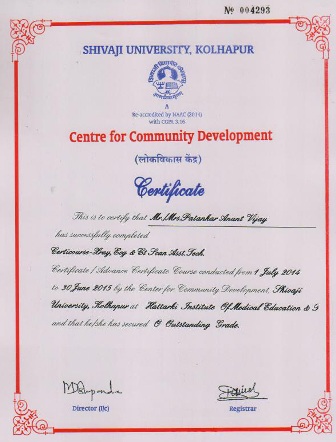 Nº 004293
SHIVAJI UNIVERSITY, KOLHAPUR
A
Re-accredited by NAAC (2014)
with CGPA 3.16
Centre for Community Development
(लोकविकास केंद्र)
Certificate
This is to certify that Mr./Mrs. Patankar Anant Vijay
has successfully completed
Certicourse-Xray, Ecg & Ct Scan Asst. Tech.
Certificate / Advance Certificate Course conducted from 1 July 2014
to 30 June 2015 by the Center for Community Development, Shivaji
University, Kolhapur at Hattarki Institute Of Medical Education & S
and that he/she has secured O Outstanding Grade.
Director (I/c)
Registrar